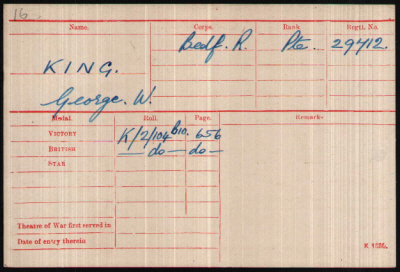 16.
Name. Corps. Rank Regtl. No.
Bedf. R. Pte. 29412.
KING.
George. W.
Medal. Roll. Page. Remarks
VICTORY K/2/104 B10. 656
BRITISH — do — do —
STAR
Theatre of War first served in
Date of entry therein
K 1535.